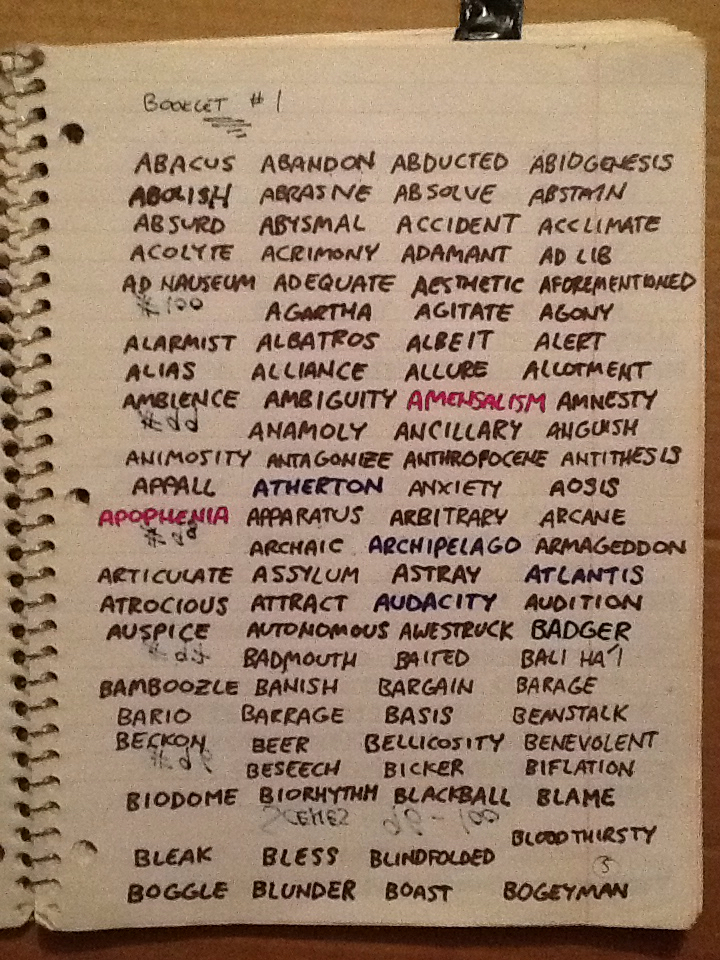 BOOKLET #1
ABACUS ABANDON ABDUCTED ABIOGENESIS
ABOLISH ABRASIVE ABSOLVE ABSTAIN
ABSURD ABYSMAL ACCIDENT ACCLIMATE
ACOLYTE ACRIMONY ADAMANT AD LIB
AD NAUSEUM ADEQUATE AESTHETIC AFOREMENTIONED
AGARTHA AGITATE AGONY
ALARMIST ALBATROS ALBEIT ALERT
ALIAS ALLIANCE ALLURE ALLOTMENT
AMBIENCE AMBIGUITY AMENSALISM AMNESTY
ANAMOLY ANCILLARY ANGUISH
ANIMOSITY ANTAGONIZE ANTHROPOCENE ANTITHESIS
APPALL ATHERTON ANXIETY AOSIS
APOPHENIA APPARATUS ARBITRARY ARCANE
ARCHAIC ARCHIPELAGO ARMAGEDDON
ARTICULATE ASSYLUM ASTRAY ATLANTIS
ATROCIOUS ATTRACT AUDACITY AUDITION
AUSPICE AUTONOMOUS AWESTRUCK BADGER
BADMOUTH BAITED BALI HA'I
BAMBOOZLE BANISH BARGAIN BARAGE
BARIO BARRAGE BASIS BEANSTALK
BECKON BEER BELLICOSITY BENEVOLENT
BESEECH BICKER BIFLATION
BIODOME BIORHYTHM BLACKBALL BLAME
BLOODTHIRSTY
BLEAK BLESS BLINDFOLDED
BOGGLE BLUNDER BOAST BOGEYMAN